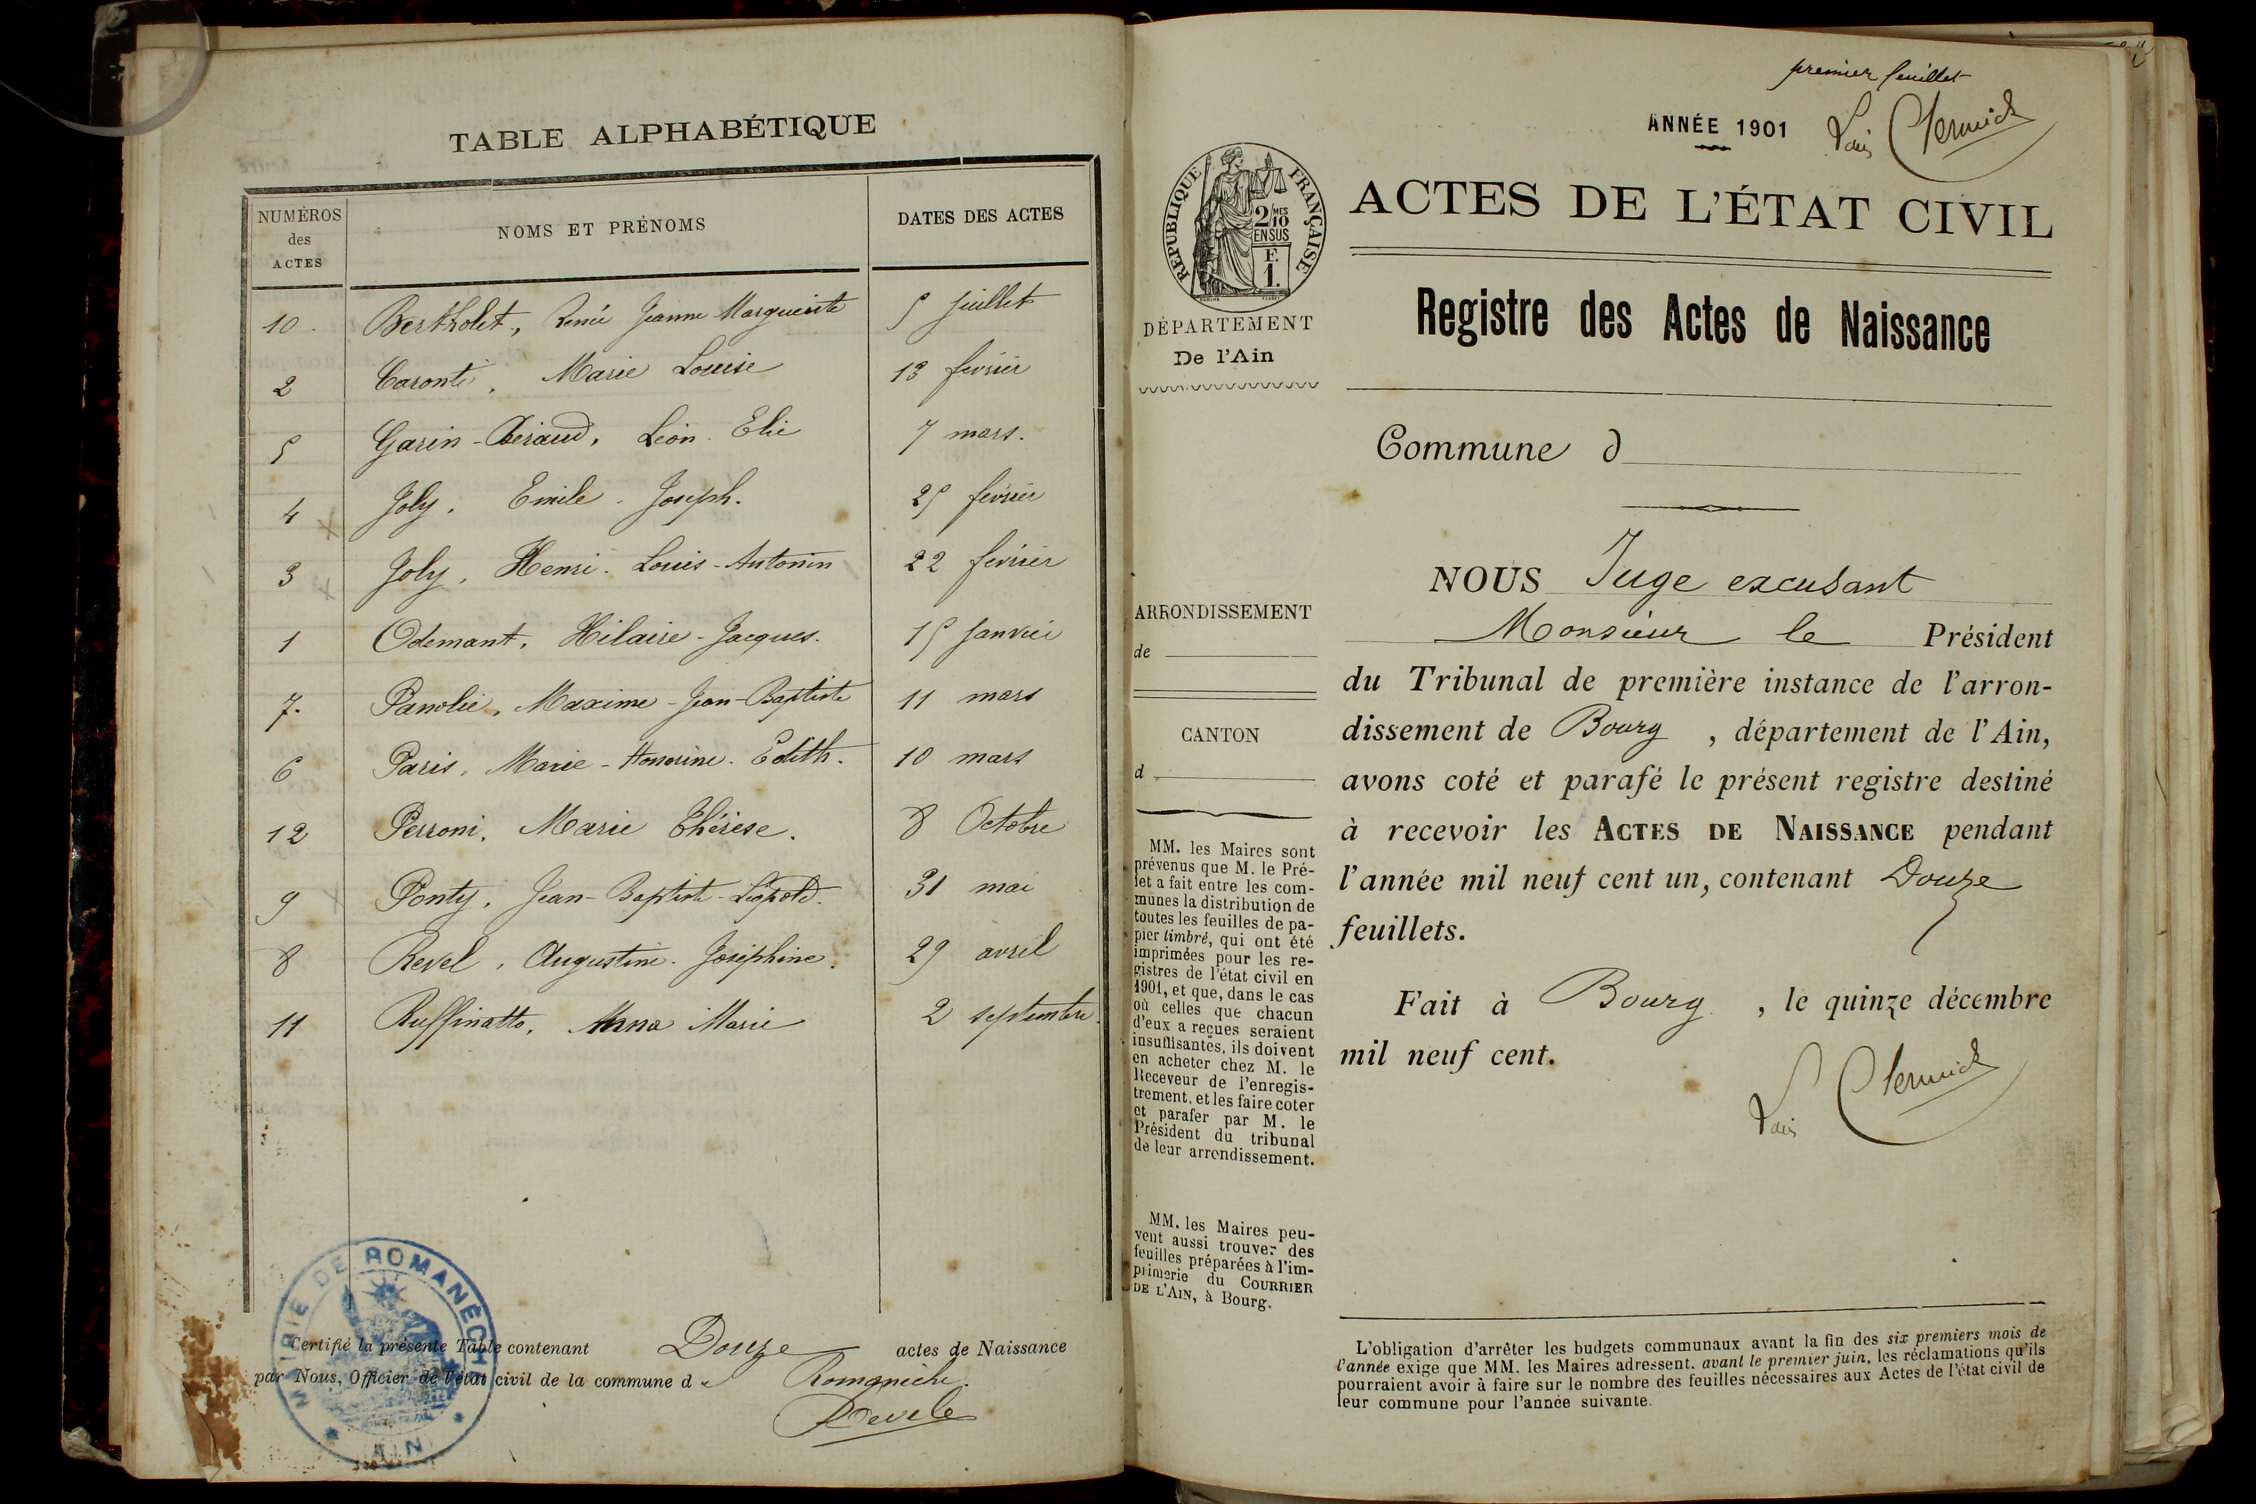 TABLE ALPHABÉTIQUE
NUMÉROS
des
ACTES
NOMS ET PRÉNOMS
DATES DES ACTES
10. Bertholet, Renée Jeanne Marguerite 5 Juillet
2 Caronti, Marie Louise 13 février
5 Garin-Béraud, Léon. Elie 7 mars.
4 Joly. Emile-Joseph. 25 février
3 Joly, Henri-Louis-Antonin 22 février
1 Odemant, Hilaire-Jacques. 15 Janvier
7. Maxime-Jean-Baptiste 11 mars
6 Paris, Marie-Honorine. Edith. 10 mars
12 Perroni, Marie Thérèse. 8 Octobre
9 Ponty, Jean-Baptiste-Léopold. 31 mai
8 Revel, Augustine. Joséphine. 29 avril
11 Ruffinatto, Anna Marie 2 septembre.
Certifié la présente Table contenant Douze actes de Naissance
par Nous, Officier de l'état civil de la commune de Romanèche.
MAIRIE DE ROMANÈCHE
AIN
premier feuillet
ANNÉE 1901
RÉPUBLIQUE FRANÇAISE
2/10MES
EN SUS
F.
1.
ACTES DE L'ÉTAT CIVIL
Registre des Actes de Naissance
DÉPARTEMENT
De l'Ain
Commune d
ARRONDISSEMENT
de
CANTON
d
NOUS Juge excusant
Monsieur le Président
du Tribunal de première instance de l'arron-
dissement de Bourg, département de l'Ain,
avons coté et parafé le présent registre destiné
à recevoir les ACTES DE NAISSANCE pendant
l'année mil neuf cent un, contenant Douze
feuillets.
Fait à Bourg, le quinze décembre
mil neuf cent.
MM. les Maires sont
prévenus que M. le Pré-
fet a fait entre les com-
munes la distribution de
toutes les feuilles de pa-
pier timbré, qui ont été
imprimées pour les re-
gistres de l'état civil en
1901, et que, dans le cas
où celles que chacun
d'eux a reçues seraient
insuffisantes, ils doivent
en acheter chez M. le
Receveur de l'enregis-
trement, et les faire coter
et parafer par M. le
Président du tribunal
de leur arrondissement.
MM. les Maires peu-
vent aussi trouver des
feuilles préparées à l'im-
primerie du COURRIER
DE L'AIN, à Bourg.
L'obligation d'arrêter les budgets communaux avant la fin des six premiers mois de
l'année exige que MM. les Maires adressent, avant le premier juin, les réclamations qu'ils
pourraient avoir à faire sur le nombre des feuilles nécessaires aux Actes de l'état civil de
leur commune pour l'année suivante.